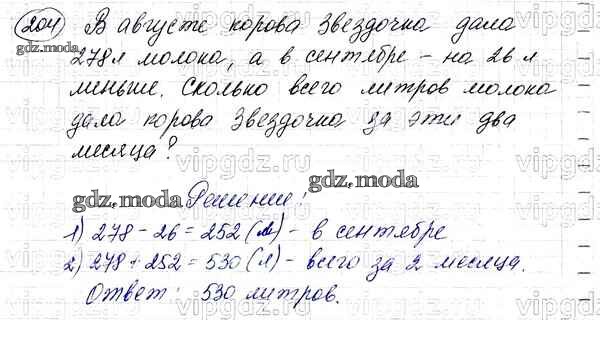 204) В августе корова Звездочка дала
gdz.moda
278 л молока, а в сентябре - на 26 л
меньше. Сколько всего литров молока
дала корова Звездочка за эти два
месяца?
vipgdz.ru
gdz.moda Решение: gdz.moda
1) 278 - 26 = 252 (л) - в сентябре
2) 278 + 252 = 530 (л) - всего за 2 месяца.
Ответ: 530 литров.
vipgdz.ru